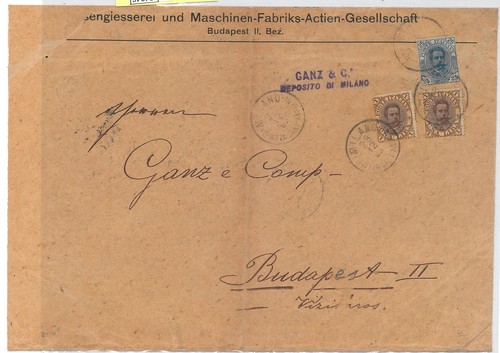 sengiesserei und Maschinen-Fabriks-Actien-Gesellschaft
Budapest II. Bez.
GANZ & C.
DEPOSITO DI MILANO
MILANO
Herren
Ganz e Comp-
Budapest II
Vizivaros.